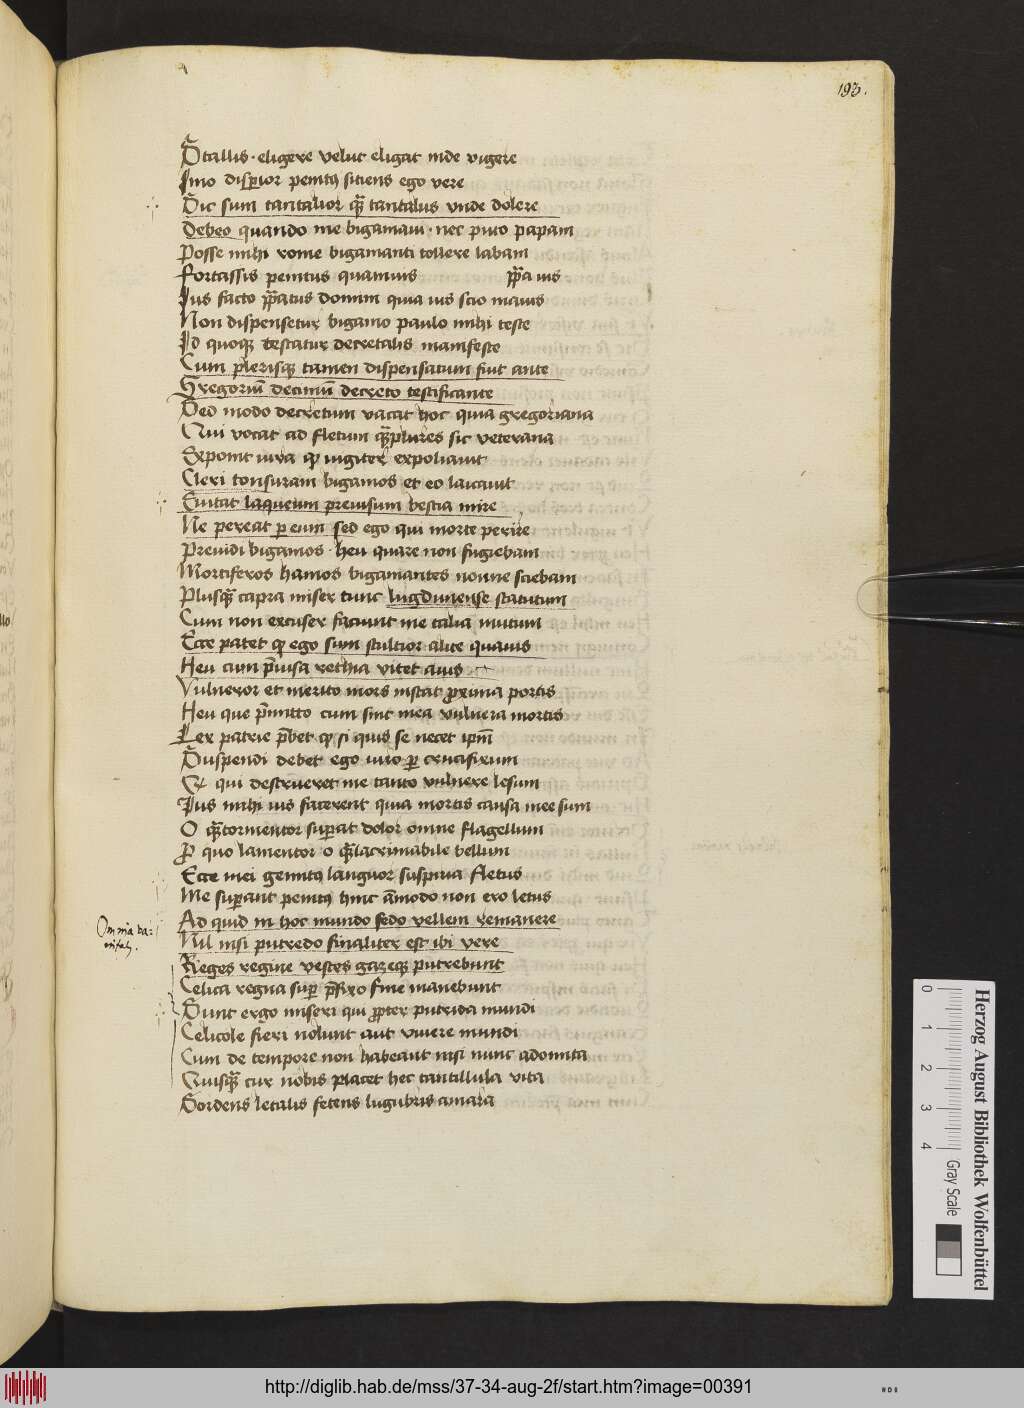 193.
Stallis · eligere velut eligat inde vigere
Imo disperior penitus sitiens ego vere
Sic sum tantalior quam tantalus unde dolere
Debeo quando me bigamavi · nec puto papam
Posse mihi rome bigamanti tollere labam
Fortassis penitus quamvis papa ius
Ius facto papatus domini quia ius scio mavis
Non dispensetur bigamo paulo mihi teste
Id quoque testatur decretalis manifeste
Cum plerisque tamen dispensatum fuit ante
Gregorium decimum decreto testificante
Sed modo decretum vacat hoc quia gregoriana
Qui vocat ad fletum quamplures sic veterana
Exponit iura quod iugiter expoliavit
Cleri tonsuram bigamos et eo laicavit
Evitat laqueum previsum bestia mire
Ne pereat per eum sed ego qui morte perire
Previdi bigamos · heu quare non fugiebam
Mortiferos hamos bigamantes nonne sciebam
Plusquam capra miser tunc lugdunense statutum
Cum non excuser faciunt me talia mutum
Ecce patet quod ego sum stultior alite quavis
Heu cum previsa rethia vitet avis
Vulneror et merito mors instat proxima portis
Heu que premitto cum sint mea vulnera mortis
Lex patrie prebet quod si quis se necet ipsum
Suspendi debet ego iuro per crucifixum
Et qui destrueret me tanto vulnere lesum
Ius mihi ius facerent quia mortis causa mee sum
O quam tormentor superat dolor omne flagellum
Pro quo lamentor o quam lacrimabile bellum
Ecce mei gemitus languor suspiria fletus
Me superant penitus hinc amodo non ero letus
Ad quid in hoc mundo sedo vellem remanere
Nil nisi putredo finaliter est ibi vere
Reges regine vestes gazeque putrebunt
Celica regna super prefixo fine manebunt
Sunt ergo miseri qui propter putrida mundi
Celicole fieri nolunt aut vivere mundi
Cum de tempore non habeant nisi nunc adomita
Quisquam cur nobis placet hec tantillula vita
Sordens letalis fetens lugubris amara
Omnia va-
nitas.
Herzog August Bibliothek Wolfenbüttel
0 1 2 3 4 Gray Scale
http://diglib.hab.de/mss/37-34-aug-2f/start.htm?image=00391